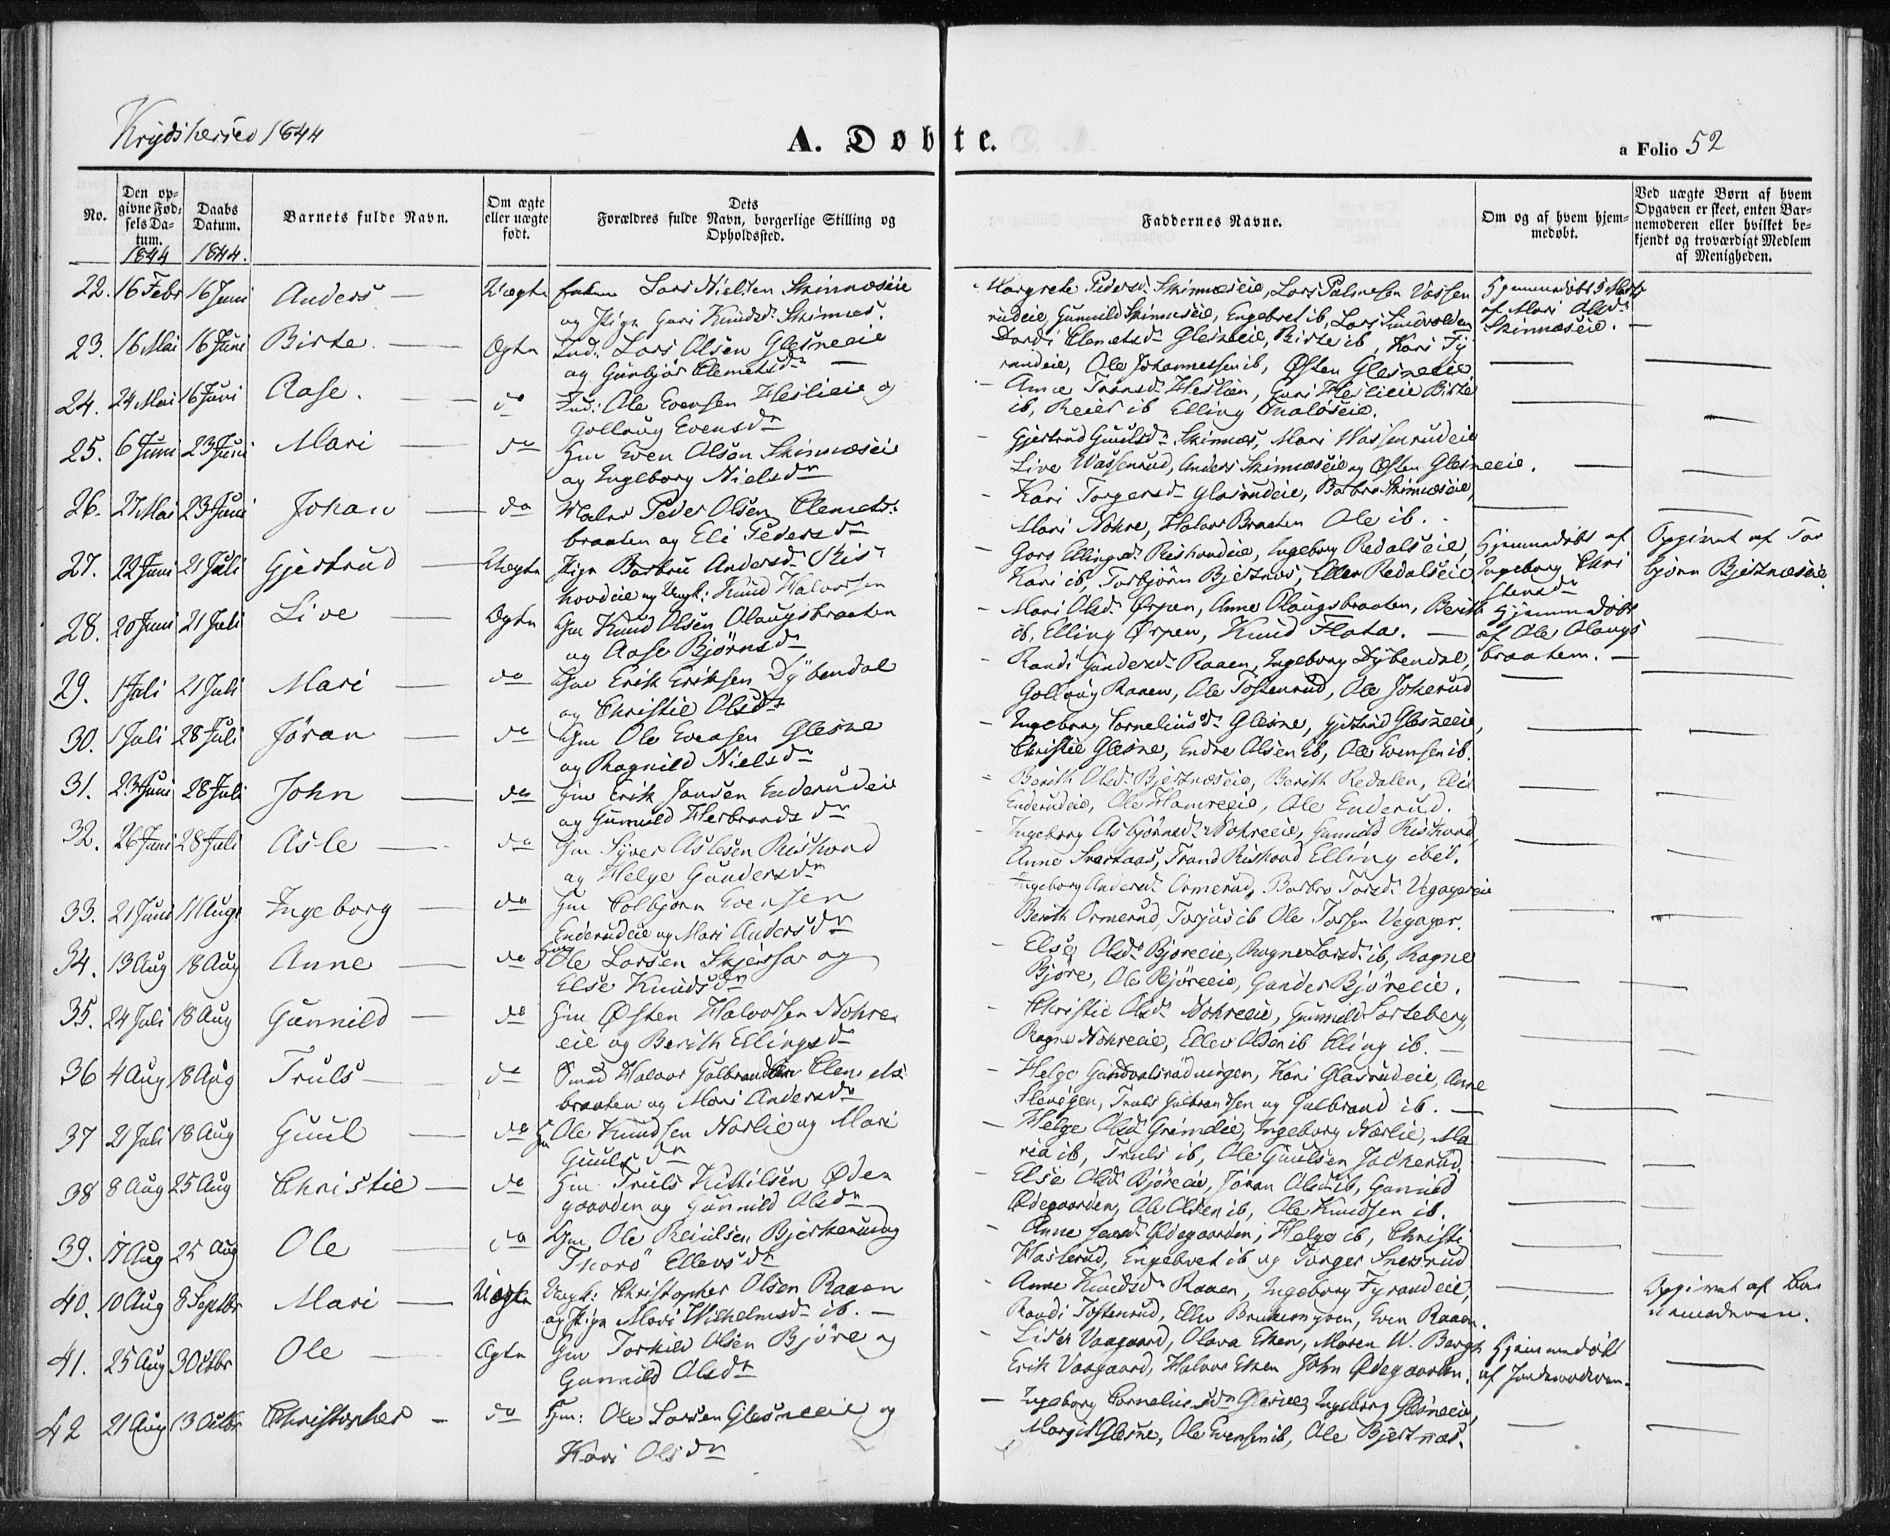 Krydsherred 1844
A. Døbte.
a Folio 52
No.
Den opgivne Fødsels Datum. 1844
Daabs Datum. 1844.
Barnets fulde Navn.
Om ægte eller uægte født.
Dets Forældres fulde Navn, borgerlige Stilling og Opholdssted.
Faddernes Navne.
Om og af hvem hjemmedøbt.
Ved uægte Børn af hvem Opgaven er skeet, enten Barnemoderen eller hvilket bekjendt og troværdigt Medlem af Menigheden.
22. 16 Febr 16 Juni Anders — Uægte Lars Nielsen Skinnæseie
og Pige Guri Knudsd. Skinnes.
Margrete Pedersd. Skinnæseie, Lars Palmesen Vassen
rudeie, Gunnild Skinnæseie, Engebret ib, Lars
Hjemmedøbt 5 Marts
af Mari Olsd.
Skinnæseie. —
23. 16 Mai 16 Juni Birte. — Ægte Ind. Lars Olsen Glesneeie
og Gunbjør Clemetsdr —
Dordi Clemetsd. Glesneeie, Birte ib, Kari Ty
randeie, Ole Johannessen ib, Østen Glesneeie
24. 24 Mai 16 Juni Aase. — do Ind: Ole Evensen Heslieie og
Gollaug Evensdr
Anne Transd. Heslien, Guri Heslieie Birte
ib, Reier ib Elling
25. 6 Juni 23 Juni Mari — do Hm Even Olsen Skinnæseie
og Ingeborg Nielsdr
Gjertrud Guulsd. Skinnæs, Mari Wassenrudeie
Live Wassenrud, Anders Skinnæseie og Østen Glesneeie.
26. 27 Mai 23 Juni Johan — do Peder Olsen Clemets
braaten og Eli Pedersdr
Kari Torgersd. Glasrudeie, Barbro Skinnæseie,
Mari Nohre, Halvor Braaten Ole ib.
27. 22 Juni 21 Juli Gjertrud — Uægte Pige Barbru Andersd. Ris
hovdeie og Ungk: Knud Halvorsen
Goro Ellingsd. Rishovdeie, Ingeborg Redalseie,
Kari ib, Torbjörn Bjertnes, Ellev Redalseie
Hjemmedøbt af
Ingeborg Chri
stensdr
Opgivet af Tor
bjørn Bjertnæseie
28. 20 Juni 21 Juli Live — Ægte Gm Knud Olsen Olaugsbraaten
og Aase Bjørnsdr
Mari Olsd. Ørpen, Anne Olaugsbraaten, Berith
ib, Elling Ørpen, Knud Flata. —
Hjemmedøbt
af Ole Olaugs
braaten. —
29. 1 Juli 21 Juli Mari — do Gm Erik Eriksen Dybendal
og Christie Olsdr
Randi Gundersd. Raaen, Ingeborg Dybendal,
Gollaug Raaen, Ole Tostenrud, Ole Jokerud
30. 1 Juli 28 Juli Jøran — do Gm Ole Evensen Glesne
og Ragnild Nielsdr
Ingeborg Corneliusd. Glesne, Gjertrud Glesneeie
Christie Glesne, Endre Olsen ib, Ole Evensen ib.
31. 23 Juni 28 Juli John — do Gm Erik Jonsen Enderudeie
og Gunnild Herbrandsdr
Berith Olsd. Bjertnæseie, Berith Redalen, Eli
Enderudeie, Ole Hamreeie, Ole Enderud.
32. 26 Juni 28 Juli Asle — do Gm Syver Aslesen Rishovd
og Helge Gundersdr
Ingeborg Asbjørnsd. Nohreeie, Gunnild Rishovd,
Anne Svartaas, Trand Rishovd Elling ibd.
33. 21 Juni 11 Aug Ingeborg — do Gm Colbjørn Evensen
Enderudeie og Mari Andersdr
Ingeborg Andersd. Ormerud, Barbro Torsd. Vegagereie
Berith Ormerud, Torjus ib Ole Torsen Vegager.
34. 13 Aug 18 Aug Anne — do Ole Larsen Skjersfar og
Else Knudsdr
Else Olsd. Bjøreeie, Ragne Larsd. ib, Ragne
Bjøre, Ole Bjøreeie, Gunder Bjøreeie.
35. 24 Juli 18 Aug Gunnild — do Gm Østen Halvorsen Nohre
eie og Berith Ellingsdr
Christie Olsd. Nohreeie, Gunnild Sorteberg,
Ragne Nohreeie, Ellev Olsen ib Elling ib. —
36 4 Aug 18 Aug Truls — do Smed Halvor Gulbrandsen Clemets
braaten og Mari Andersdr
Helge Gundvalsrødningen, Kari Glasrudeie, Anne
Truls Gulbrandsen og Gulbrand ib. —
37 21 Juli 18 Aug Guul — do Gm Ole Knudsen Norlie og Mari
Guulsdr
Helge Olsd. Ingeborg Norlie, Ma
ria ib, Truls ib, Ole Guulsen Jokerud
38 8 Aug 25 Aug Christie — do Gm Truls Kittilsen Øde
gaarden og Gunnild Olsdr
Else Olsd. Bjøreeie, Jøran Olsd. ib, Gunnild
Ødegaarden, Ole Olsen ib, Ole Knudsen ib.
39. 17 Aug 25 Aug Ole — do Gm Ole Reiulsen Bjerkerud og
Thorø Ellevsdr
Anne Ødegaarden, Helge ib, Christi
Haslerud, Engebret ib og Torger Snersrud
40. 10 Aug 8 Septbr Mari — Uægte Ungk: Christopher Olsen Raaen
og Pige Mari Wilhelmsd. ib. —
Anne Knudsd. Raaen, Ingeborg Tyrandeie,
Randi Tostenrud, Ellev Even Raaen.
Opgivet af Bar
nemoderen.
41. 25 Aug 3 Octbr Ole — Ægte Gm Torkild Olsen Bjøre og
Gunnild Olsdr
Liser Vaagaard, Olava Eken, Maren W. Bergh
Erik Vaagaard, Halvor Eken John Ødegaarden.
Hjemmedøbt
af Jordmoderen.
42 21 Aug 13 Octbr Christopher — do Hm: Ole Larsen Glesneeie og
Kari Olsdr
Ingeborg Corneliusdr Glesne, Ingeborg Glesneeie,
Margit Glesne, Ole Evensen ib, Ole Bjertnæs.